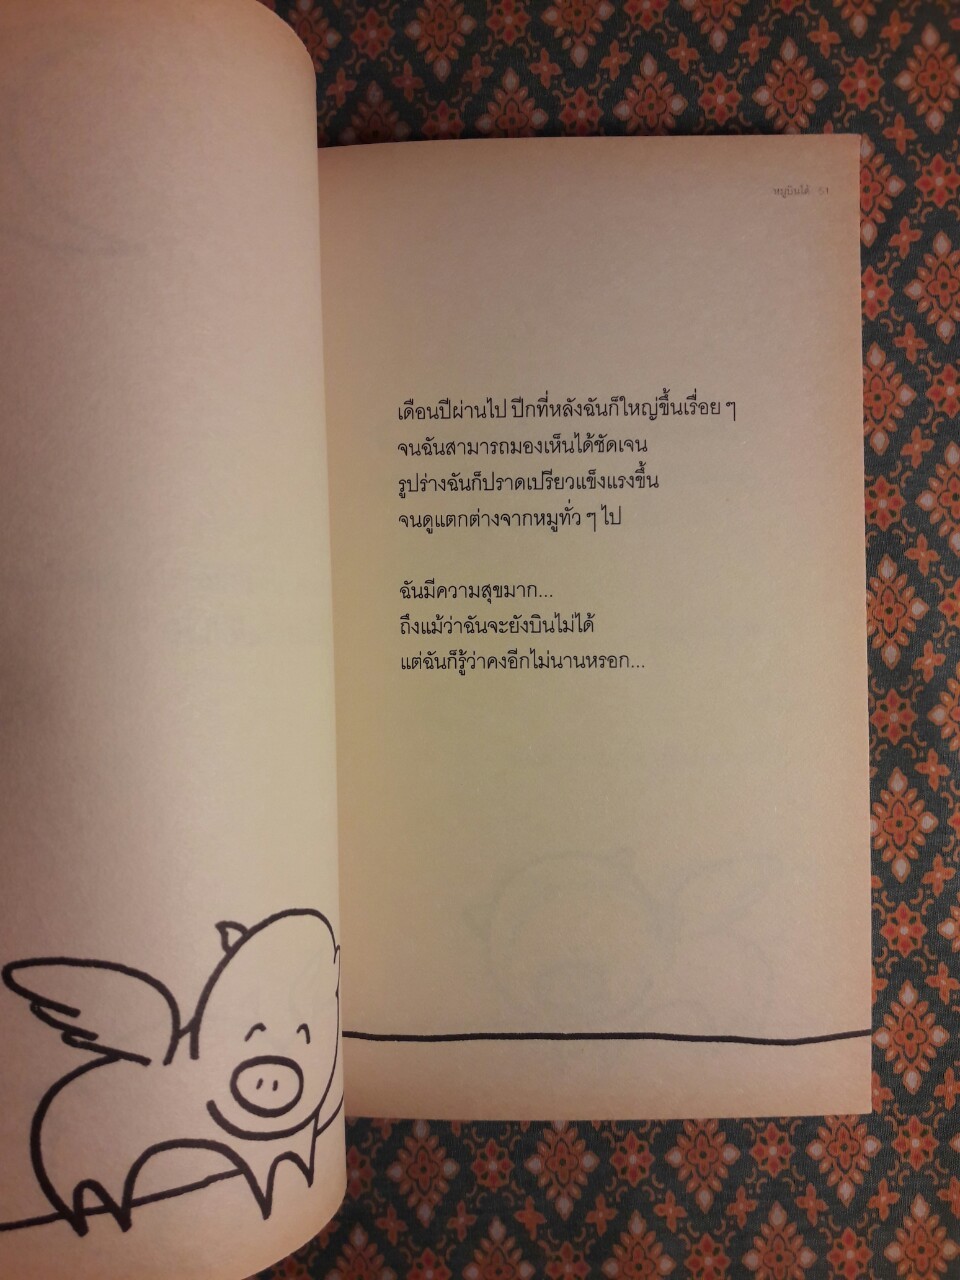 หมูบินได้ 51
เดือนปีผ่านไป ปีกที่หลังฉันก็ใหญ่ขึ้นเรื่อย ๆ
จนฉันสามารถมองเห็นได้ชัดเจน
รูปร่างฉันก็ปราดเปรียวแข็งแรงขึ้น
จนดูแตกต่างจากหมูทั่ว ๆ ไป
ฉันมีความสุขมาก...
ถึงแม้ว่าฉันจะยังบินไม่ได้
แต่ฉันก็รู้ว่าคงอีกไม่นานหรอก...